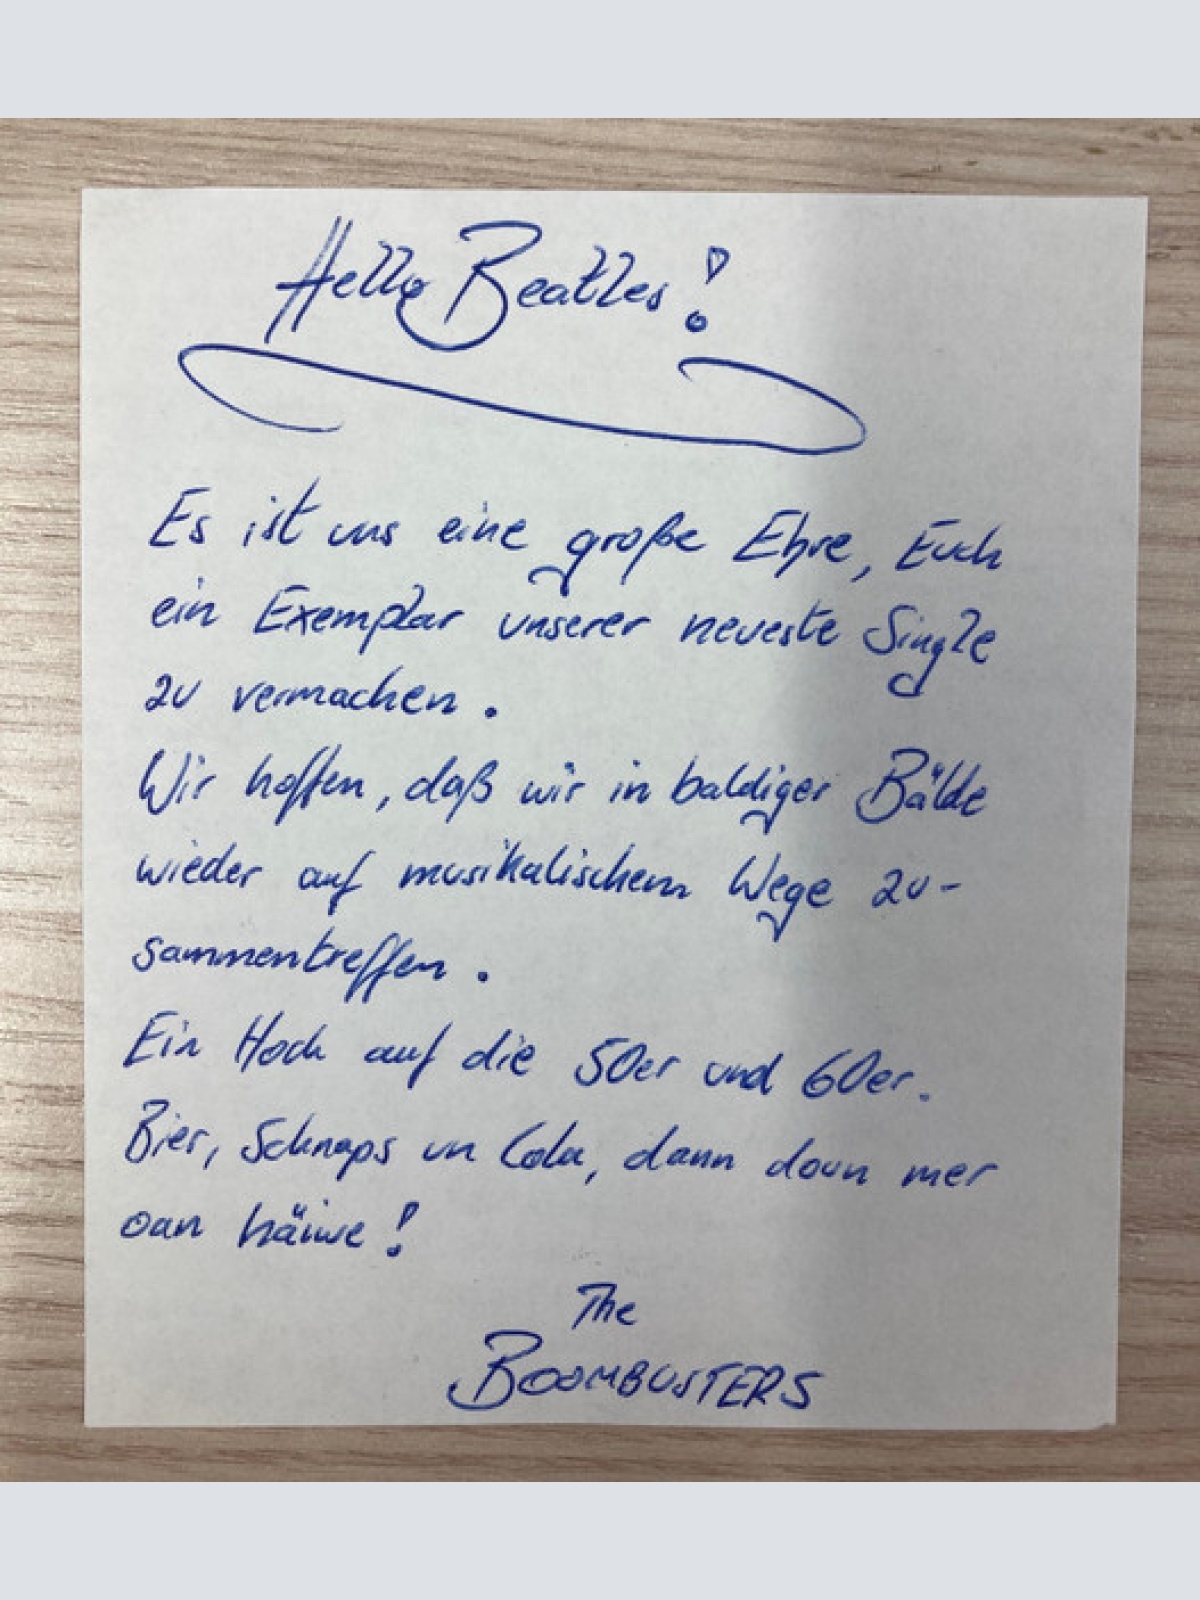 Hello Beatles!
Es ist uns eine große Ehre, Euch
ein Exemplar unserer neueste Single
zu vermachen.
Wir hoffen, daß wir in baldiger Bälde
wieder auf musikalischem Wege zu-
sammentreffen.
Ein Hoch auf die 50er und 60er.
Bier, Schnaps un Cola, dann doun mer
oan häiwe!
The
BOOMBUSTERS